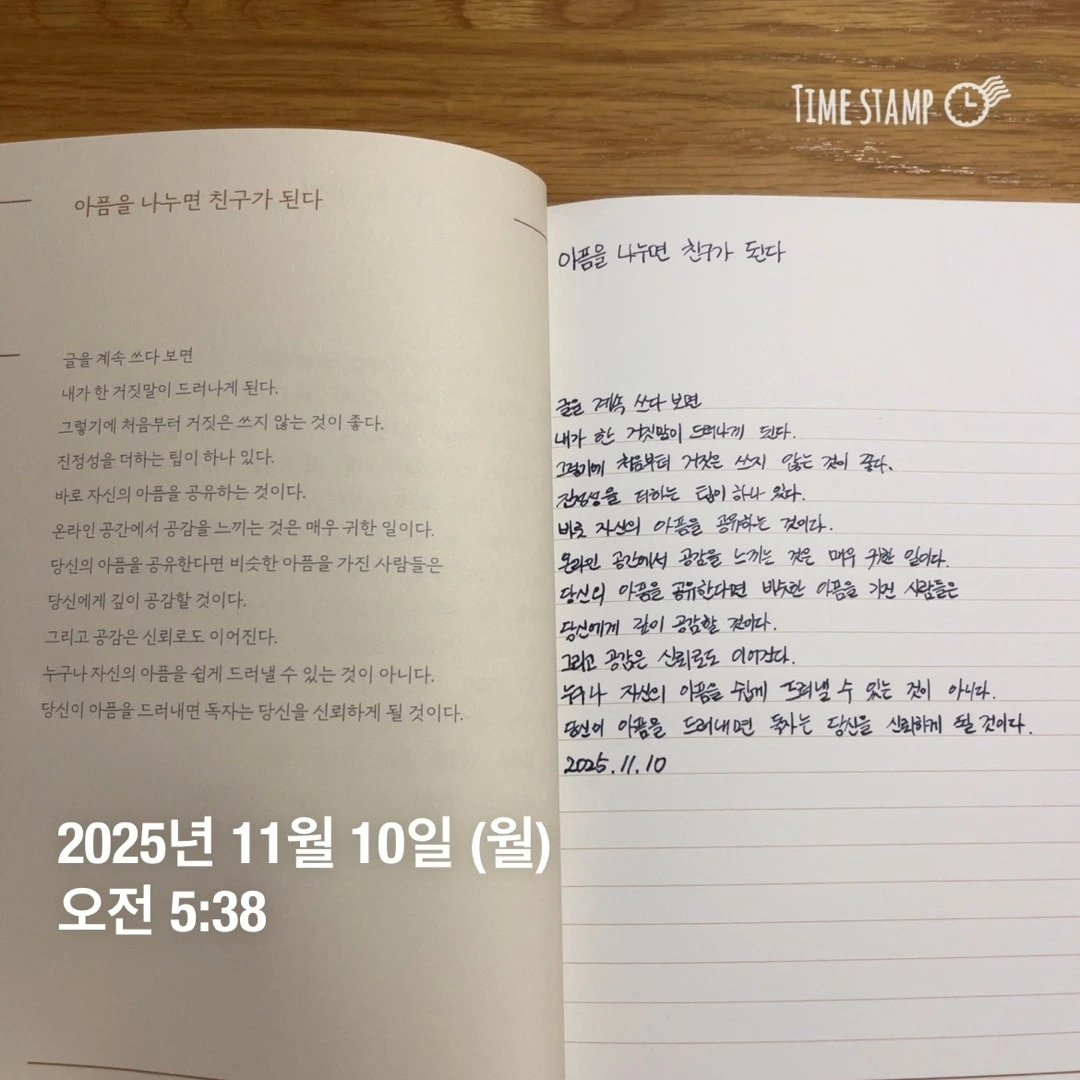 TIME STAMP
아픔을 나누면 친구가 된다
글을 계속 쓰다 보면
내가 한 거짓말이 드러나게 된다.
그렇기에 처음부터 거짓은 쓰지 않는 것이 좋다.
진정성을 더하는 팁이 하나 있다.
바로 자신의 아픔을 공유하는 것이다.
온라인 공간에서 공감을 느끼는 것은 매우 귀한 일이다.
당신의 아픔을 공유한다면 비슷한 아픔을 가진 사람들은
당신에게 깊이 공감할 것이다.
그리고 공감은 신뢰로도 이어진다.
누구나 자신의 아픔을 쉽게 드러낼 수 있는 것이 아니다.
당신이 아픔을 드러내면 독자는 당신을 신뢰하게 될 것이다.
2025년 11월 10일 (월)
오전 5:38
아픔을 나누면 친구가 된다
글을 계속 쓰다 보면
내가 한 거짓말이 드러나게 된다.
그렇기에 처음부터 거짓은 쓰지 않는 것이 좋다.
진정성을 더하는 팁이 하나 있다.
바로 자신의 아픔을 공유하는 것이다.
온라인 공간에서 공감을 느끼는 것은 매우 귀한 일이다.
당신의 아픔을 공유한다면 비슷한 아픔을 가진 사람들은
당신에게 깊이 공감할 것이다.
그리고 공감은 신뢰로도 이어진다.
누구나 자신의 아픔을 쉽게 드러낼 수 있는 것이 아니다.
당신이 아픔을 드러내면 독자는 당신을 신뢰하게 될 것이다.
2025.11.10